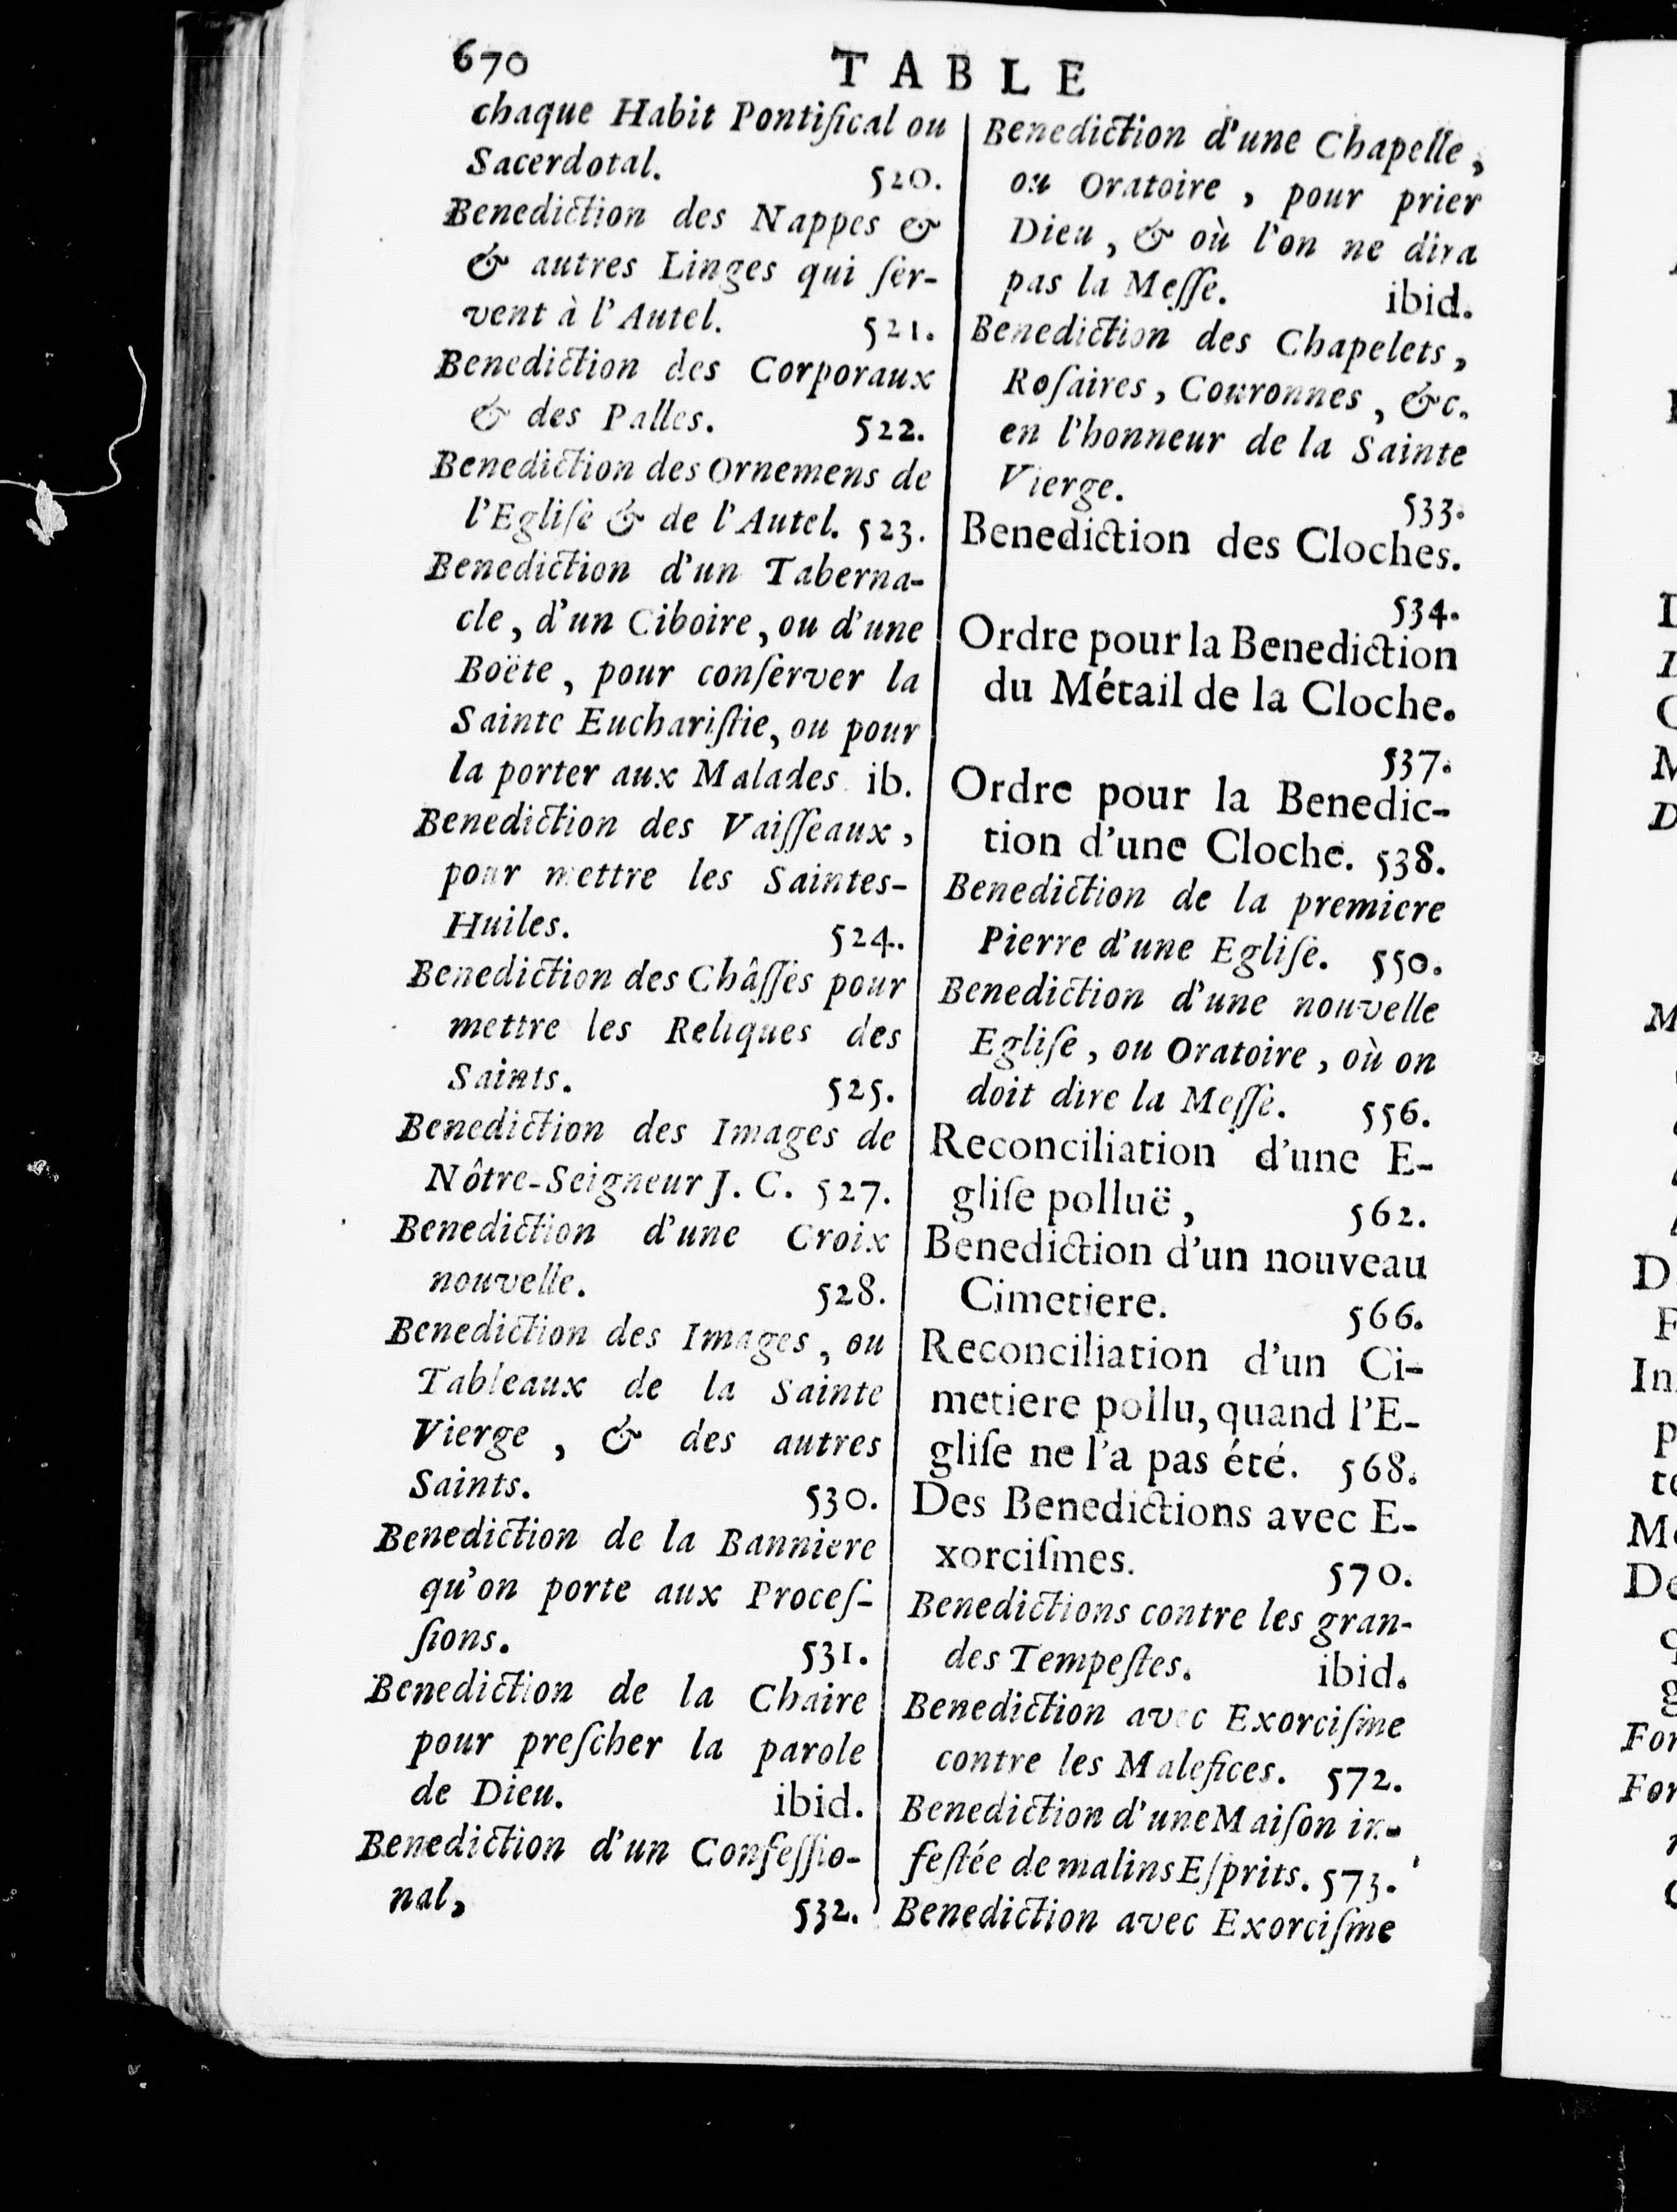 670
TABLE
chaque Habit Pontifical ou
Sacerdotal. 520.
Benediction des Nappes &
& autres Linges qui ſer-
vent à l'Autel. 521.
Benediction des Corporaux
& des Palles. 522.
Benediction des Ornemens de
l'Egliſe & de l'Autel. 523.
Benediction d'un Taberna-
cle, d'un Ciboire, ou d'une
Boëte, pour conſerver la
Sainte Euchariſtie, ou pour
la porter aux Malades ib.
Benediction des Vaiſſeaux,
pour mettre les Saintes-
Huiles. 524.
Benediction des Châſſes pour
mettre les Reliques des
Saints. 525.
Benediction des Images de
Nôtre-Seigneur J. C. 527.
Benediction d'une Croix
nouvelle. 528.
Benediction des Images, ou
Tableaux de la Sainte
Vierge, & des autres
Saints. 530.
Benediction de la Banniere
qu'on porte aux Proceſ-
ſions. 531.
Benediction de la Chaire
pour preſcher la parole
de Dieu. ibid.
Benediction d'un Confeſſio-
nal, 532.
Benediction d'une Chapelle,
ou Oratoire, pour prier
Dieu, & où l'on ne dira
pas la Meſſe. ibid.
Benediction des Chapelets,
Roſaires, Couronnes, &c.
en l'honneur de la Sainte
Vierge. 533.
Benediction des Cloches.
534.
Ordre pour la Benediction
du Métail de la Cloche.
537.
Ordre pour la Benedic-
tion d'une Cloche. 538.
Benediction de la premiere
Pierre d'une Egliſe. 550.
Benediction d'une nouvelle
Egliſe, ou Oratoire, où on
doit dire la Meſſe. 556.
Reconciliation d'une E-
gliſe polluë, 562.
Benediction d'un nouveau
Cimetiere. 566.
Reconciliation d'un Ci-
metiere pollu, quand l'E-
gliſe ne l'a pas été. 568.
Des Benedictions avec E-
xorciſmes. 570.
Benedictions contre les gran-
des Tempeſtes. ibid.
Benediction avec Exorciſme
contre les Malefices. 572.
Benediction d'une Maiſon in-
feſtée de malins Eſprits. 573.
Benediction avec Exorciſme